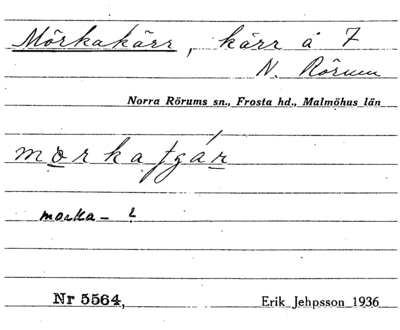 Mörkakärr, kärr å 7
N. Rörum
Norra Rörums sn., Frosta hd., Malmöhus län
morka
morka – ?
Nr 5564,
Erik Jehpsson 1936